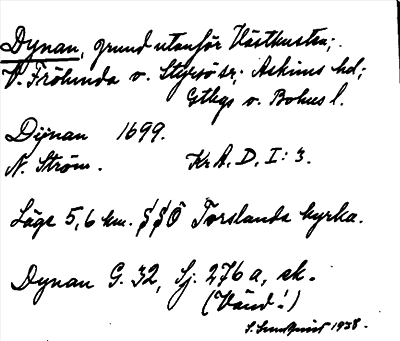 Dynan, grund utanför Västkusten;
V. Frölunda o. Styrsö sr; Askims hd;
Gtbgs o. Bohus l.
Dijnan 1699.
N. Ström. Kr.A. D. I: 3.
Läge 5,6 km. S Torslanda kyrka.
Dynan G. 32, Sj. 276 a, ek.
(Vänd!)
S. 1938.